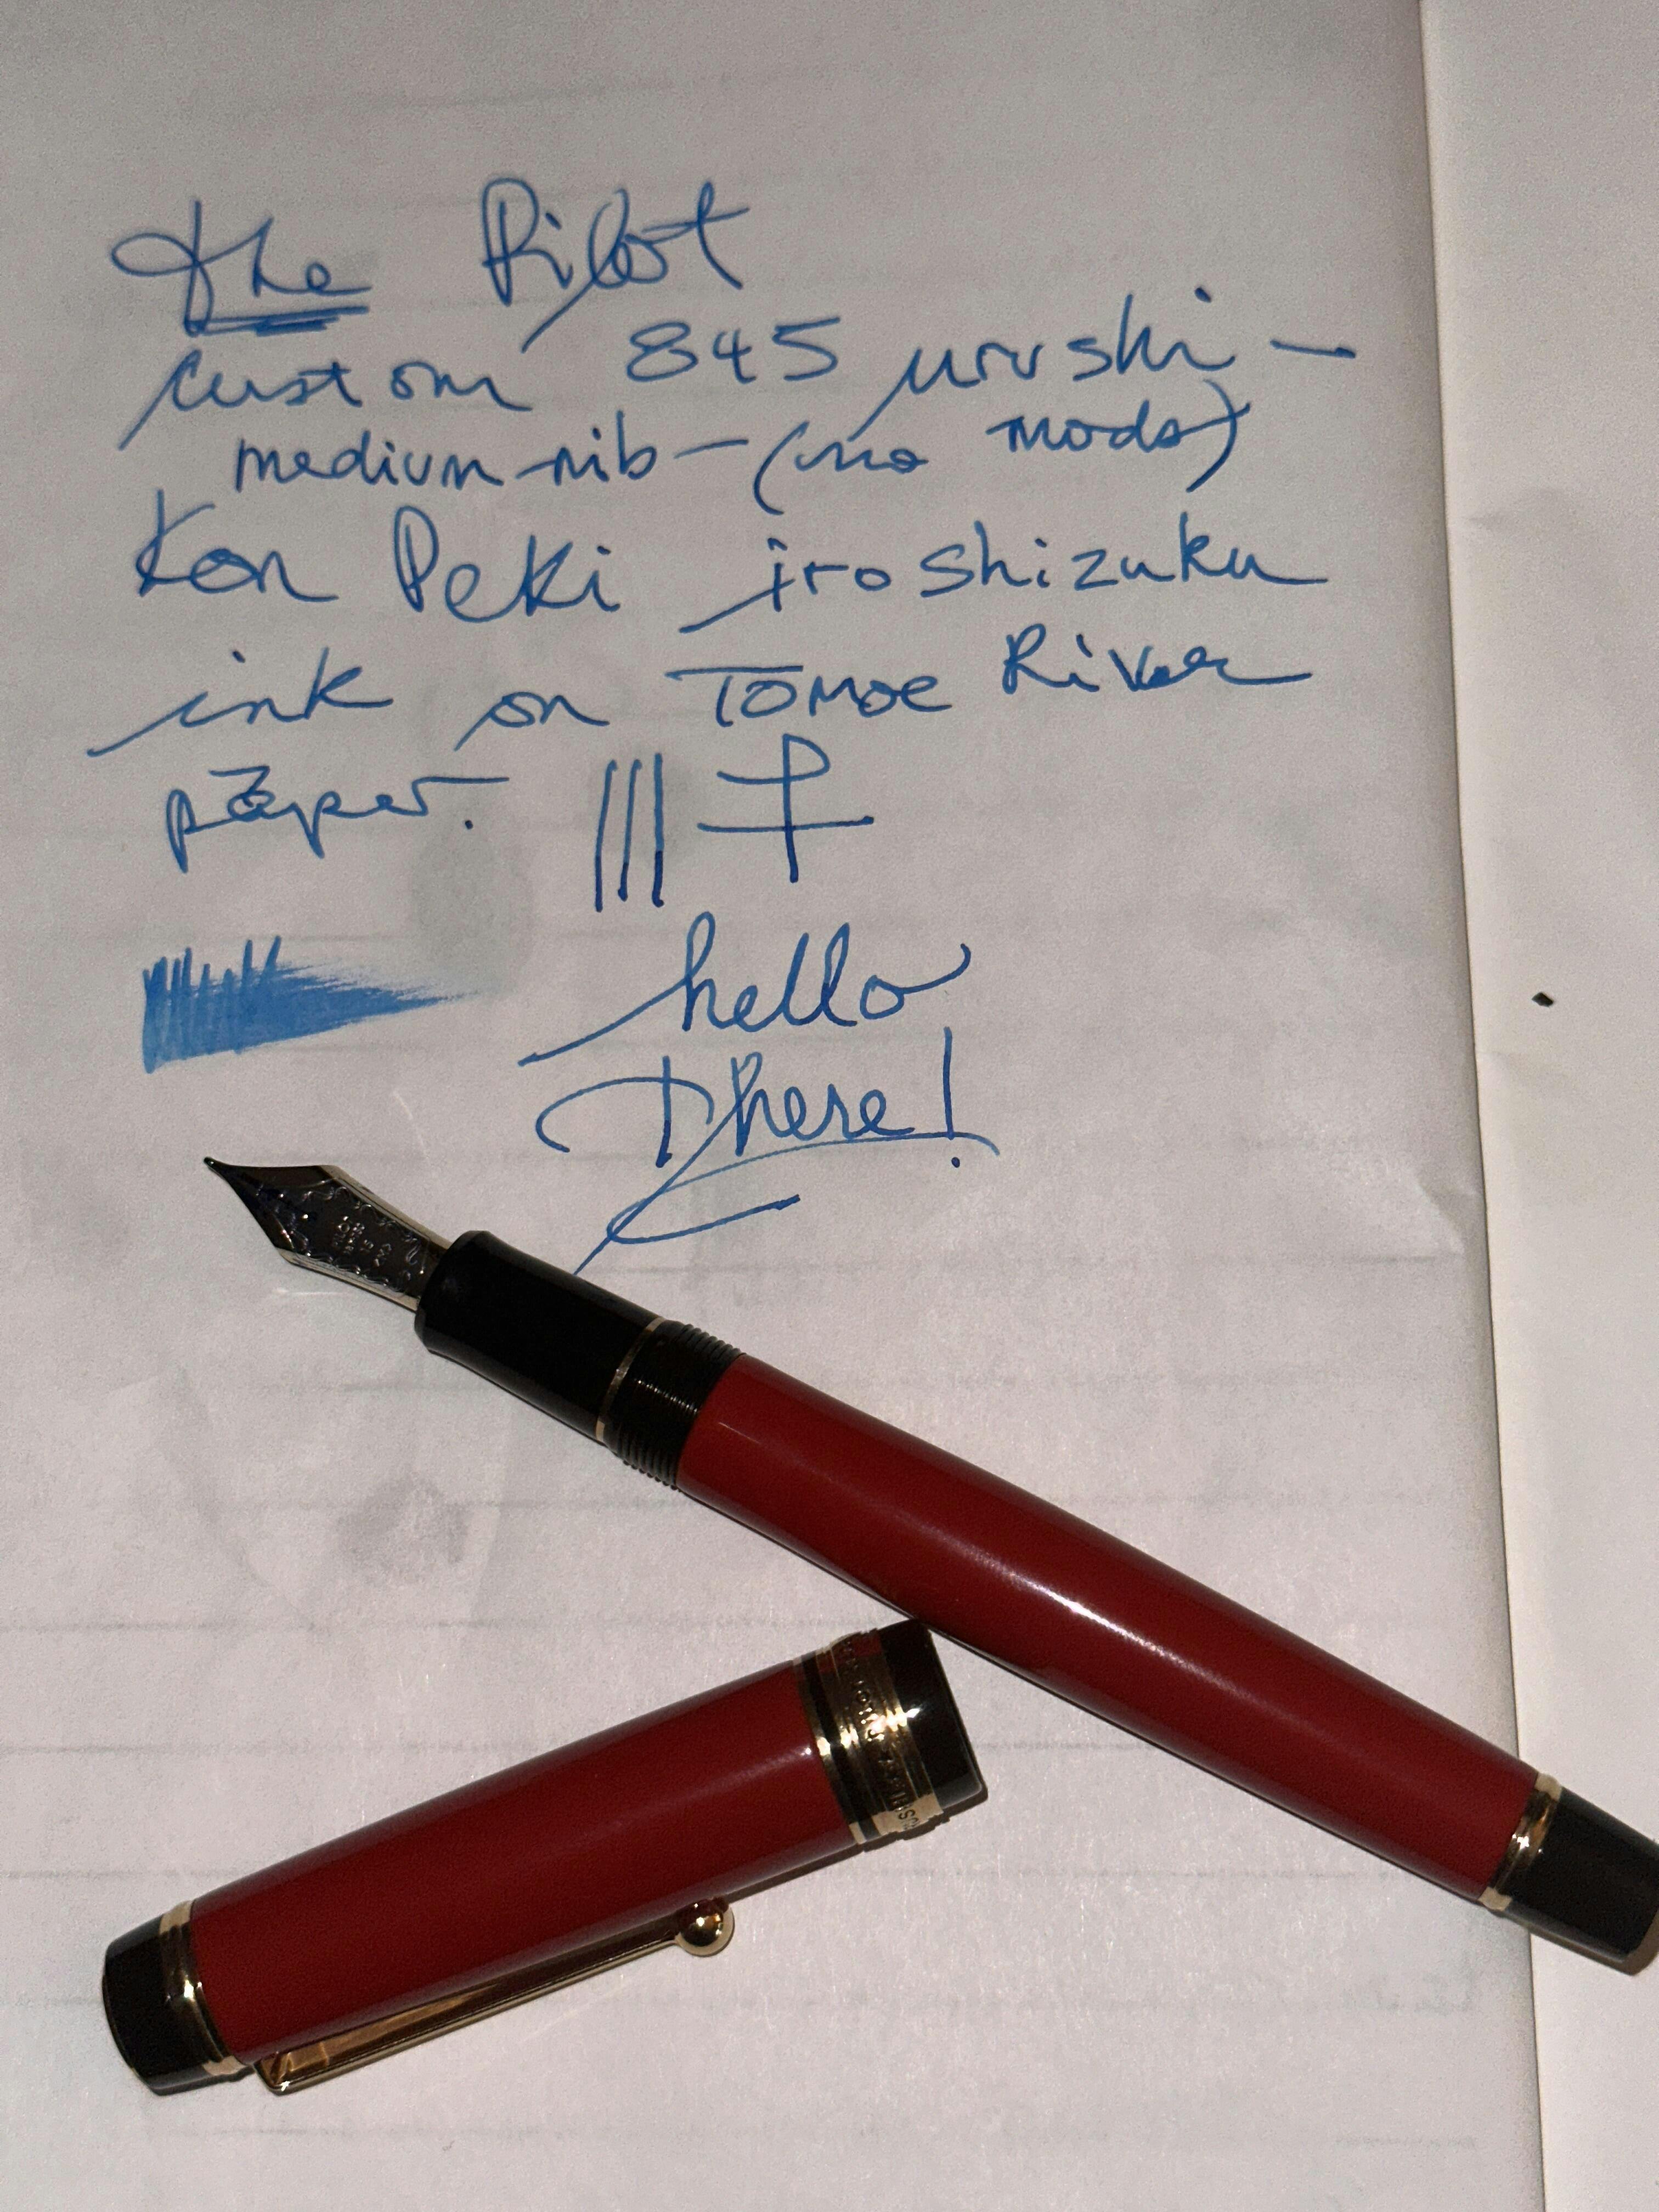 the Pilot
custom 845 urushi —
medium nib — (no mods)
Kon Peki iroshizuku
ink on Tomoe River
paper.
hello
there!